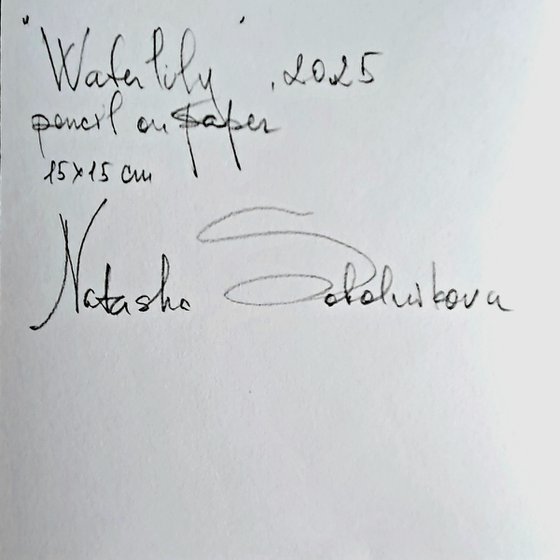 "Waterlily", 2025
pencil on paper
15x15 cm
Natasha Sokolnikova